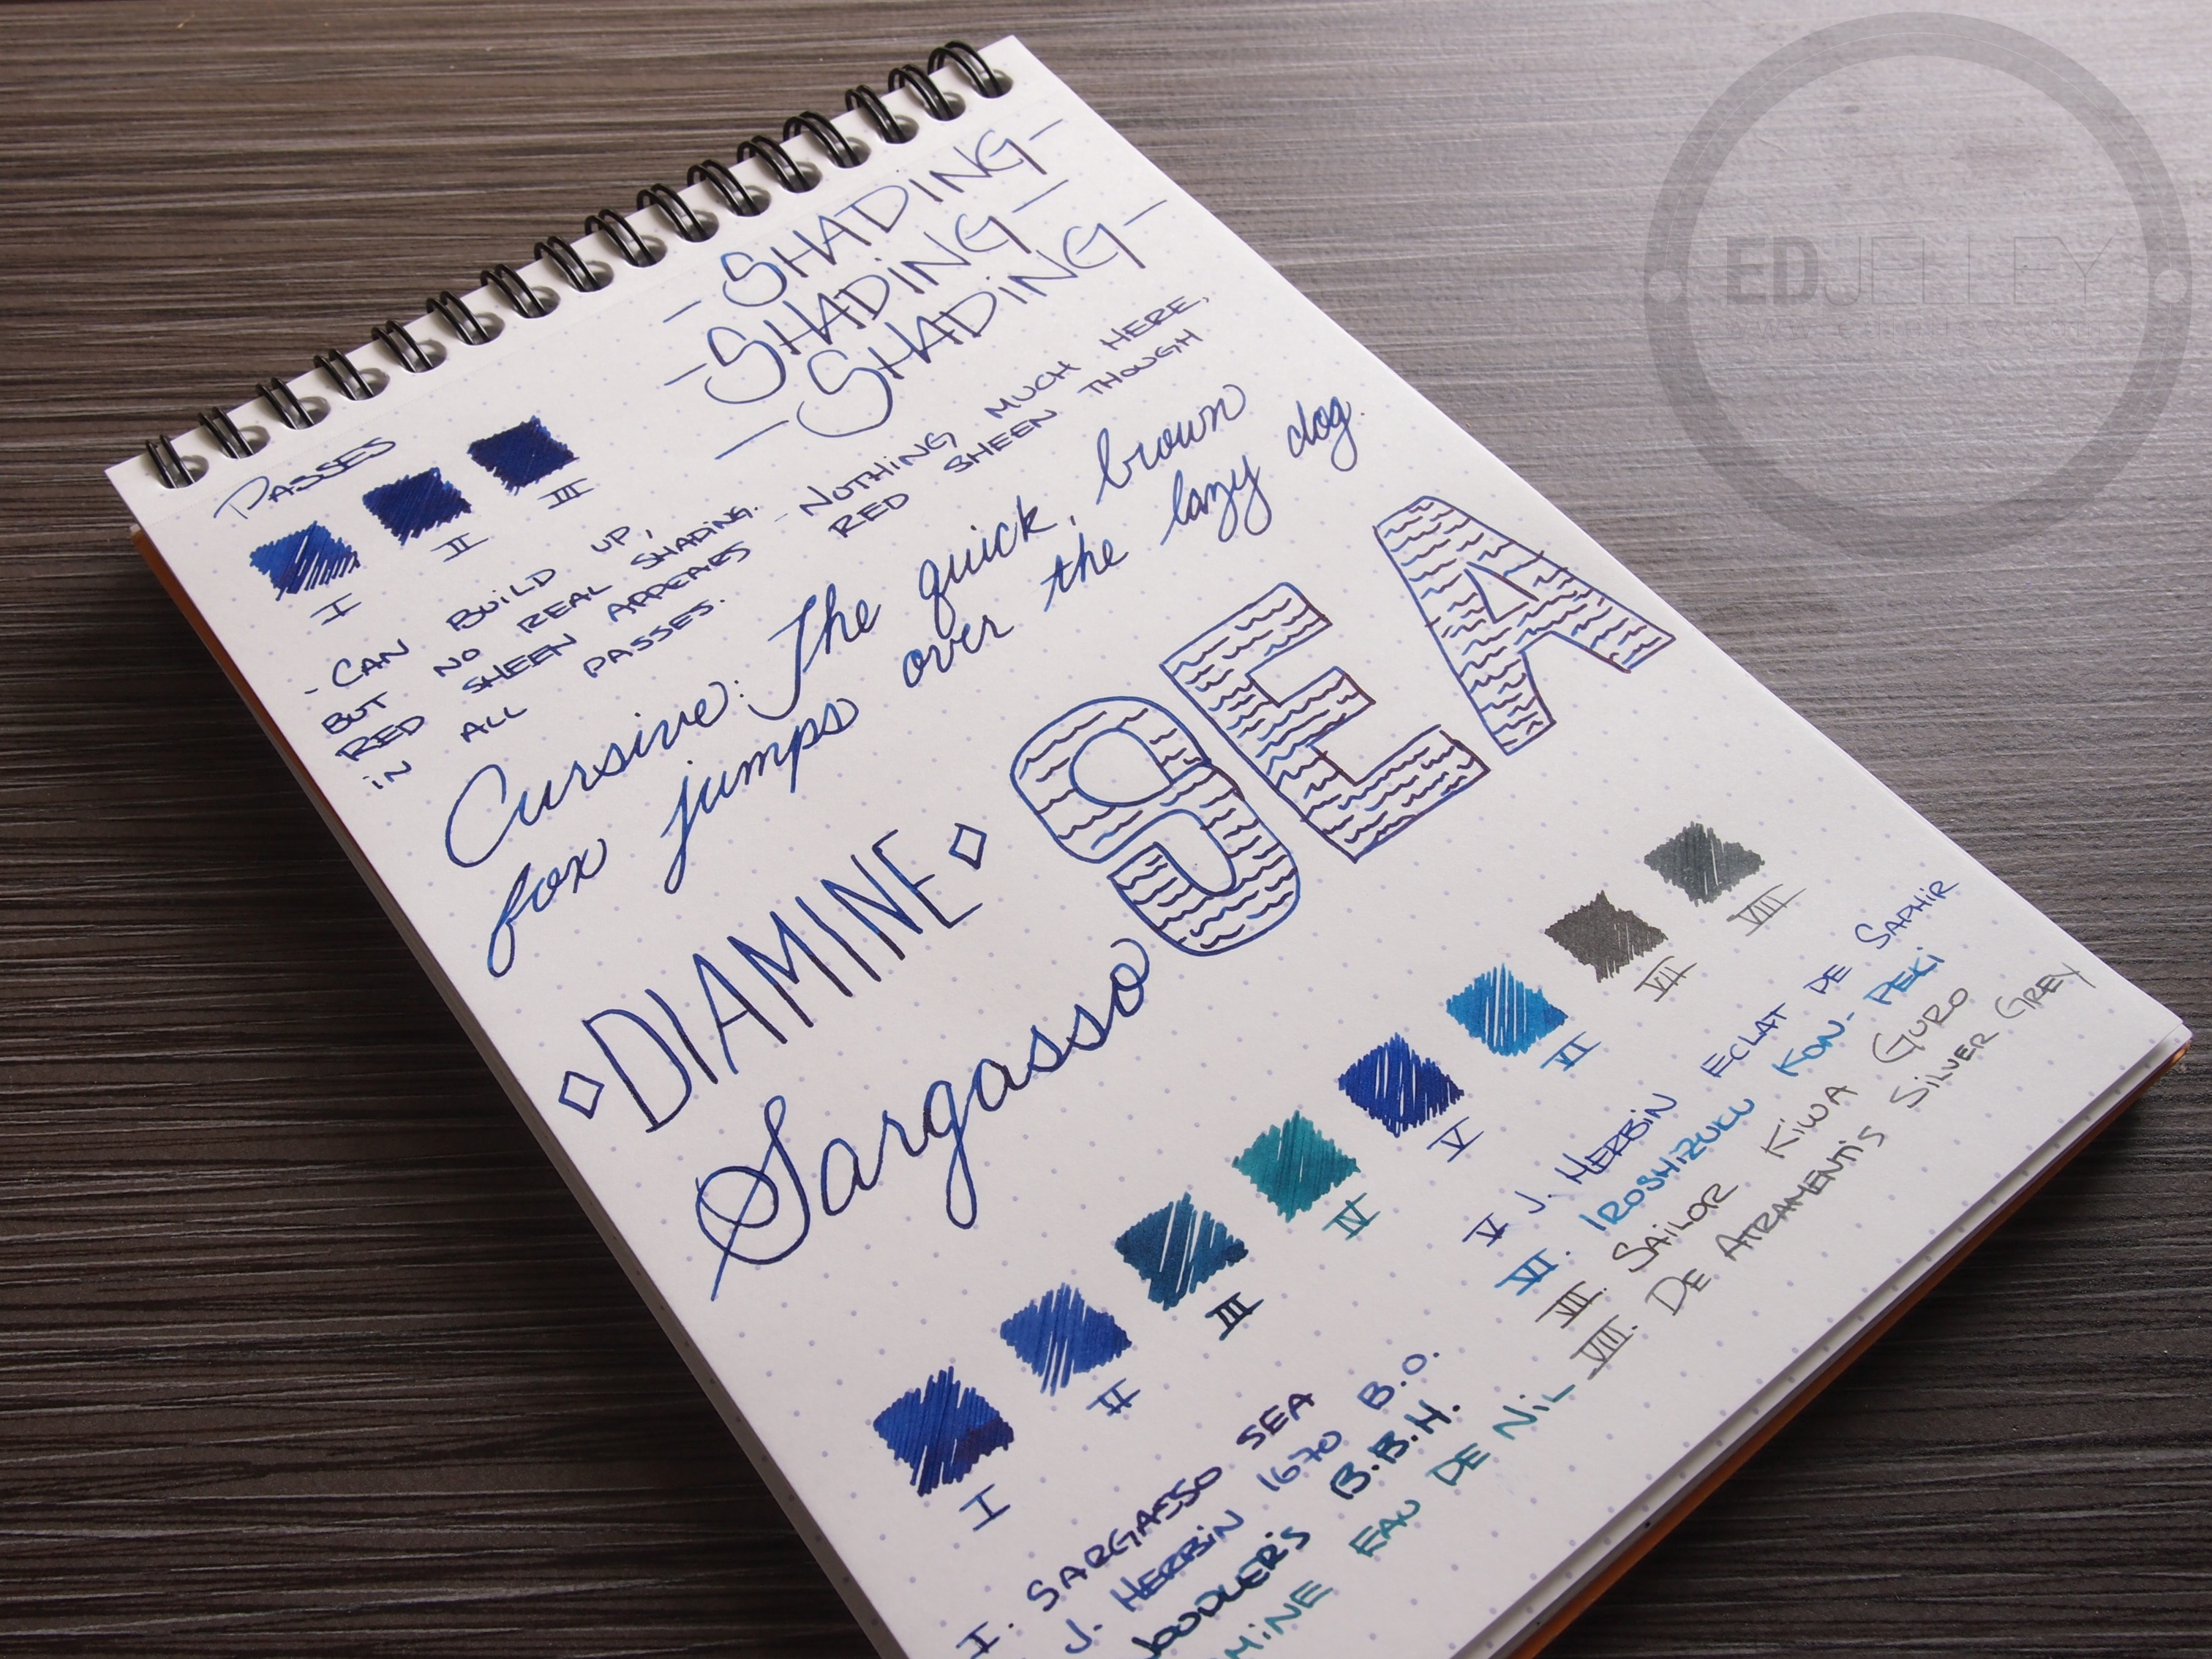 -SHADING-
-SHADING-
-SHADING-
PASSES
I
II
III
-CAN BUILD UP,
BUT NO REAL SHADING.
RED SHEEN APPEARS
IN ALL PASSES.
-NOTHING MUCH HERE,
RED SHEEN THOUGH
Cursive: The quick, brown
fox jumps over the lazy dog.
◇DIAMINE◇
Sargasso
SEA
I
II
III
IV
V
VI
VII
VIII
I. SARGASSO SEA
J. HERBIN 1670 B.O.
B.B.H.
EAU DE NIL
V J. HERBIN ECLAT DE SAPHIR
VI. IROSHIZUKU KON-PEKI
VII. SAILOR KIWA GURO
VIII. DE ATRAMENTIS SILVER GREY
EDJELLEY